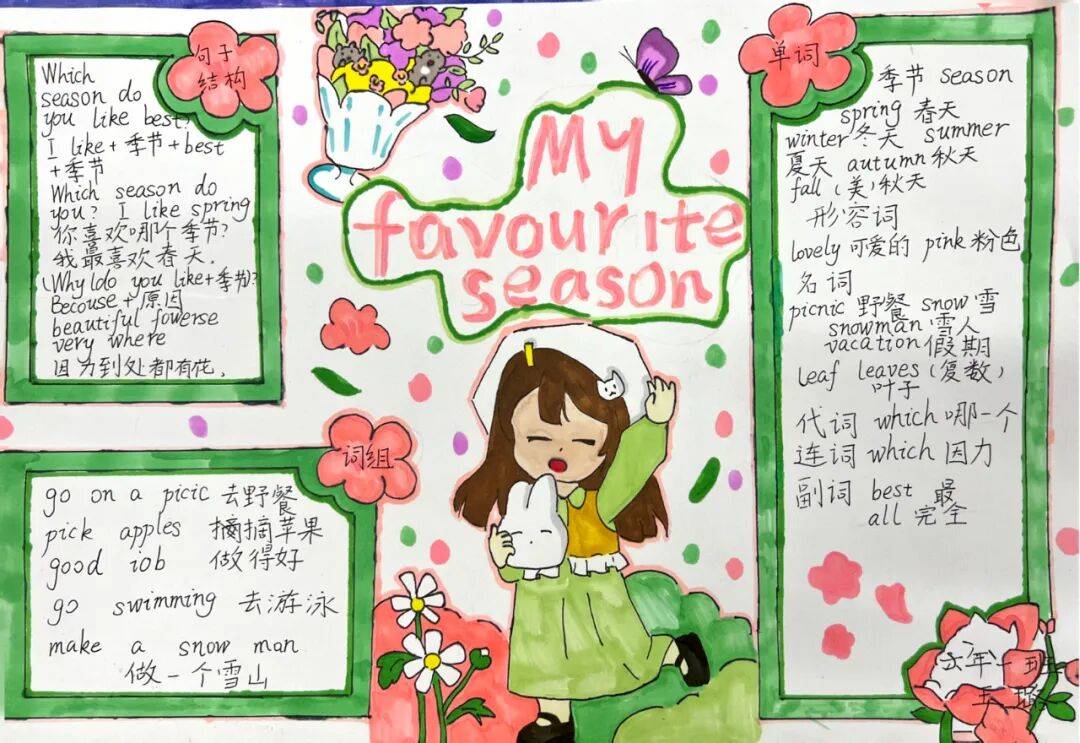 句子
结构
Which
season do
you like best?
I like+季节+best
+季节
Which season do
you? I like spring
你喜欢哪个季节?
我最喜欢春天.
(Why(do you like+季节)?
Becouse+原因
beautiful fowerse
very where
因为到处都有花.
My
favourite
season
单词
季节 season
spring 春天
winter 冬天 summer
夏天 autumn 秋天
fall (美)秋天
形容词
lovely 可爱的 pink 粉色
名词
picnic 野餐 snow 雪
snowman 雪人
vacation 假期
leaf leaves (复数)
叶子
代词 which 哪一个
连词 which 因力
副词 best 最
all 完全
词组
go on a picic 去野餐
pick apples 摘摘苹果
good iob 做得好
go swimming 去游泳
make a snow man
做一个雪山
年一班